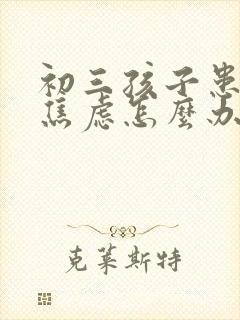 初三孩子患
焦虑怎麼办
克莱斯特